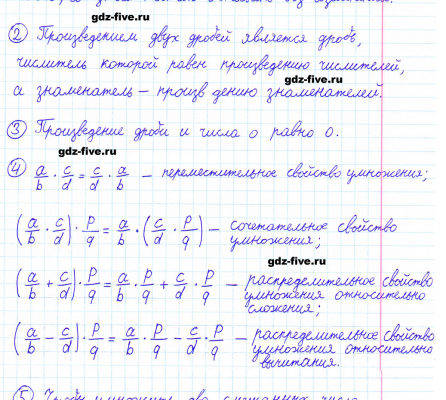 gdz-five.ru
② Произведением двух дробей является дробь,
числитель которой равен произведению числителей,
gdz-five.ru
а знаменатель – произв дению знаменателей.
③ Произведение дроби и числа 0 равно 0.
gdz-five.ru
④ a/b · c/d = c/d · a/b — переместительное свойство умножения;
(a/b · c/d) · p/q = a/b · (c/d · p/q) — сочетательное свойство
умножения;
gdz-five.ru
(a/b + c/d) · p/q = a/b · p/q + c/d · p/q — распределительное свойство
умножения относительно
сложения;
(a/b − c/d) · p/q = a/b · p/q − c/d · p/q — распределительное свойство
умножения относительно
вычитания.